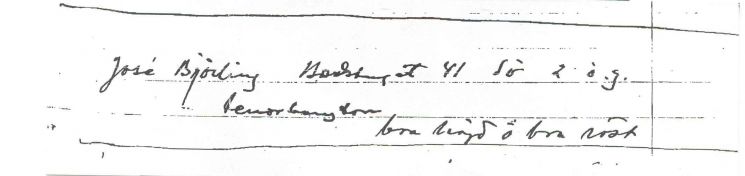 José Björling Bastugat 41 Sö 2 ö.g.
tenorbaryton
bra höjd o bra röst